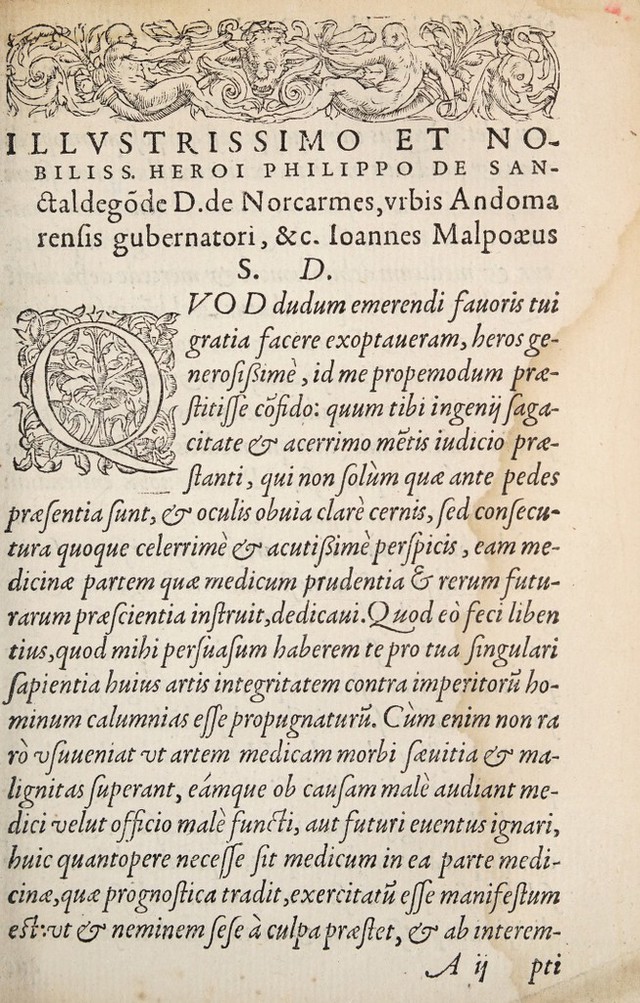 ILLVSTRISSIMO ET NO-
BILISS. HEROI PHILIPPO DE SAN-
ctaldegõde D.de Norcarmes,vrbis Andoma
rensis gubernatori, &c. Ioannes Malpoæus
S. D.
QVOD dudum emerendi fauoris tui
gratia facere exoptaueram, heros ge-
nerosißimè, id me propemodum præ-
ſtitiſſe cõfido: quum tibi ingenij ſaga-
citate & acerrimo mẽtis iudicio præ-
ſtanti, qui non ſolùm quæ ante pedes
præſentia ſunt, & oculis obuia clarè cernis, ſed conſecu-
tura quoque celerrimè & acutißimè perſpicis, eam me-
dicinæ partem quæ medicum prudentia & rerum futu-
rarum præſcientia inſtruit,dedicaui.Quod eò feci liben
tius,quod mihi perſuaſum haberem te pro tua ſingulari
ſapientia huius artis integritatem contra imperitorũ ho-
minum calumnias eſſe propugnaturũ. Cùm enim non ra
rò vſuueniat vt artem medicam morbi ſæuitia & ma-
lignitas ſuperant, eámque ob cauſam malè audiant me-
dici velut officio malè functi, aut futuri euentus ignari,
huic quantopere neceſſe ſit medicum in ea parte medi-
cinæ,quæ prognoſtica tradit,exercitatũ eſſe manifeſtum
eſt:vt & neminem ſeſe à culpa præſtet, & ab interem-
A ij pti